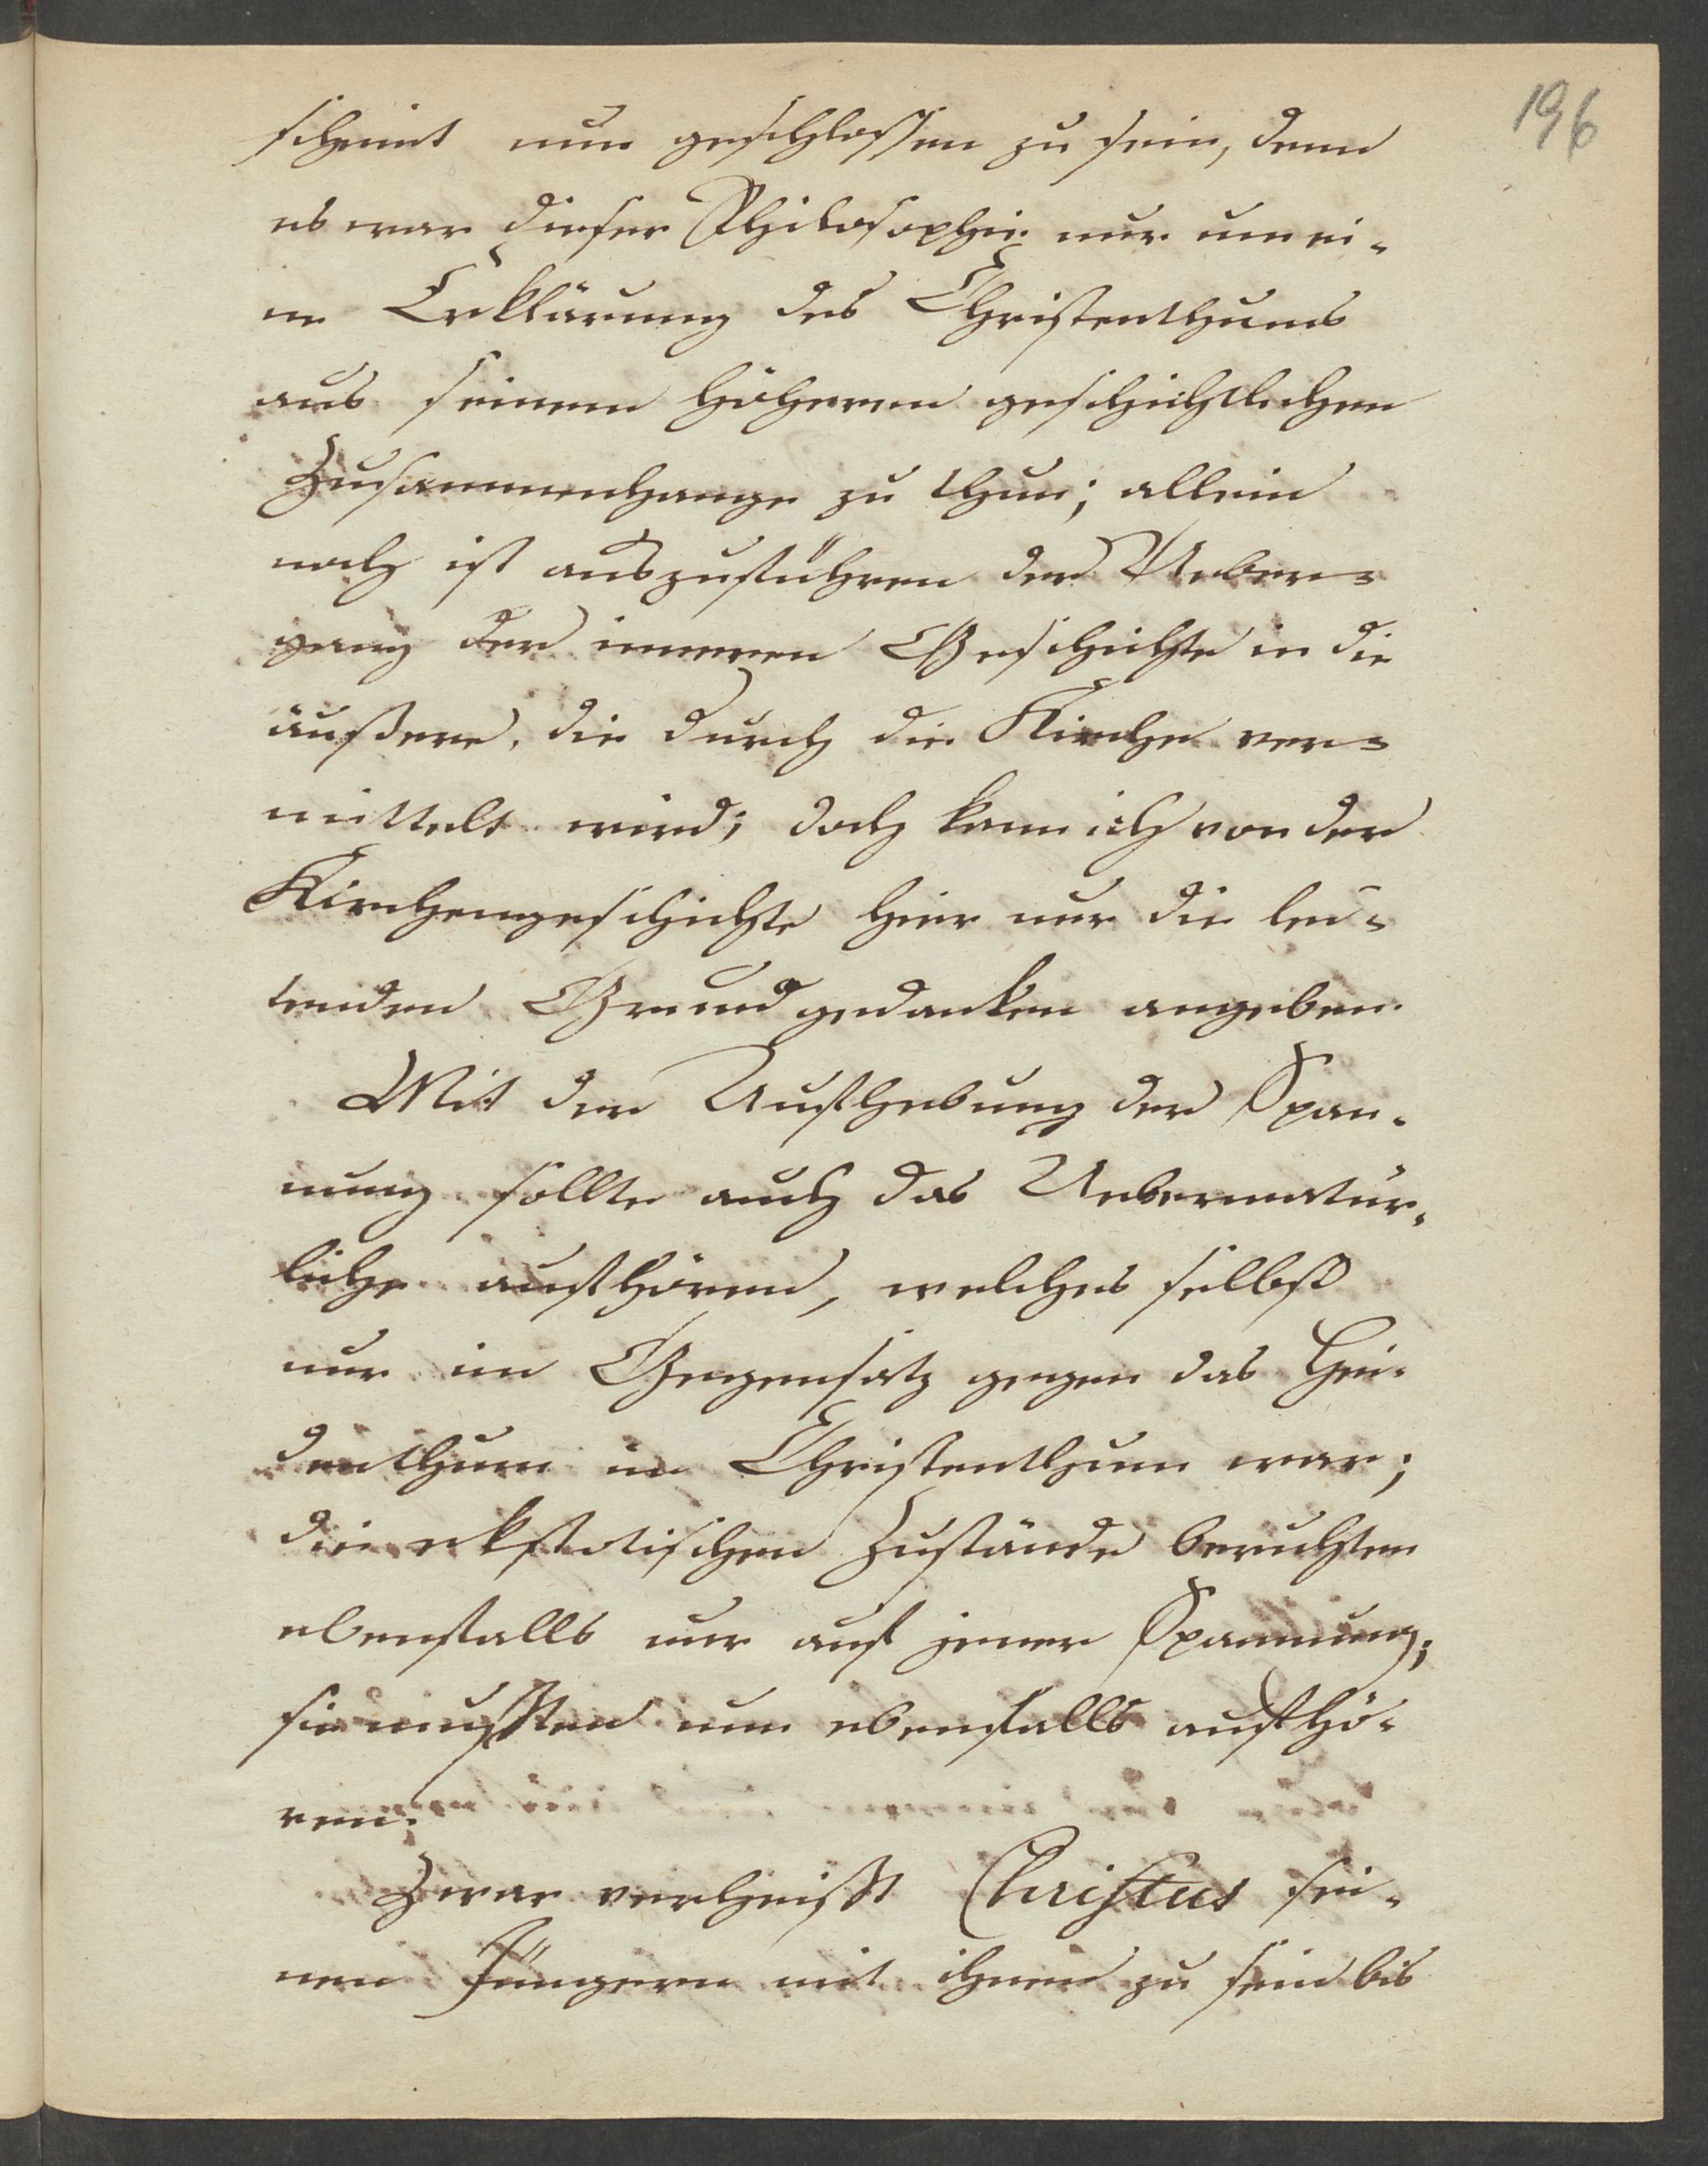 196
scheint nun geschlossen zu sein, denn
es war dieser Philosophie nur um ei-
ne Erklärung des Christenthums
aus seinem höheren geschichtlichen
Zusammenhange zu thun; allein
noch ist auszuführen der Ueber-
gang der inneren Geschichte in die
äußere, die durch die Kirche ver-
mittelt wird; doch kann ich von der
Kirchengeschichte hier nur die lei-
tenden Grundgedanken angeben.
Mit der Aufhebung der Span-
nung sollte auch das Uebernatür-
liche aufhören, welches selbst
nur im Gegensatz gegen das Hei-
denthum im Christenthum war;
die ekstatischen Zustände beruhten
ebenfalls nur auf jener Spannung;
sie mußten nun ebenfalls aufhö-
ren.
Zwar verheißt Christus sei-
nen Jüngern mit ihnen zu sein bis